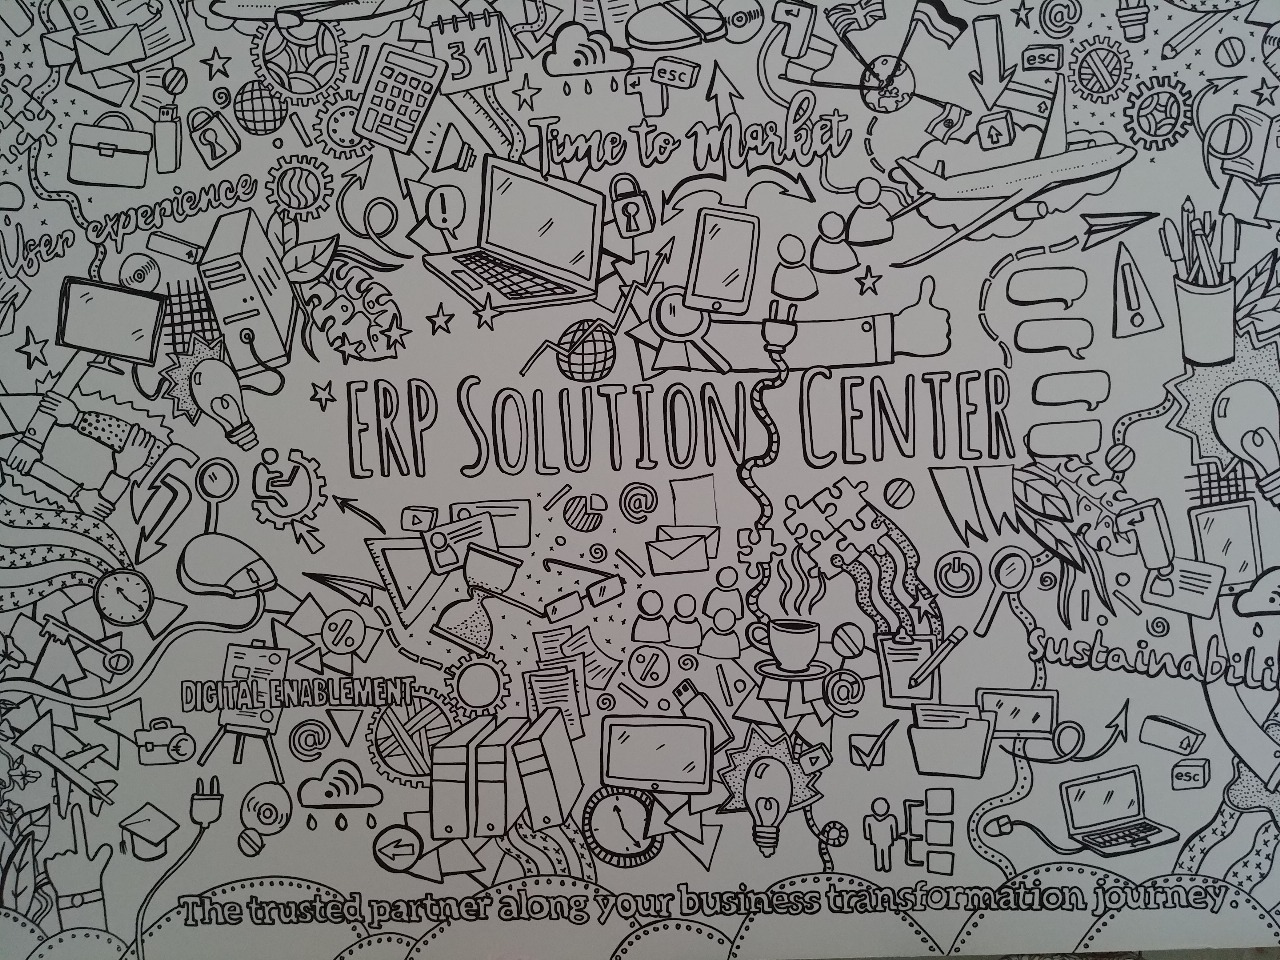 31
esc
esc
Time to Market
User experience
!
!
ERP SOLUTIONS CENTER
@
@
%
sustainabili
%
DIGITAL ENABLEMENT
@
@
esc
The trusted partner along your business transformation journey.